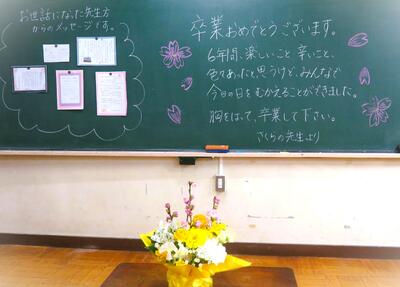 お世話になった先生方
からのメッセージです。
卒業おめでとうございます。
6年間、楽しいこと 辛いこと、
色々あったと思うけど、みんなで
今日の日をむかえることができました。
胸をはって、卒業して下さい。
さくらの先生より